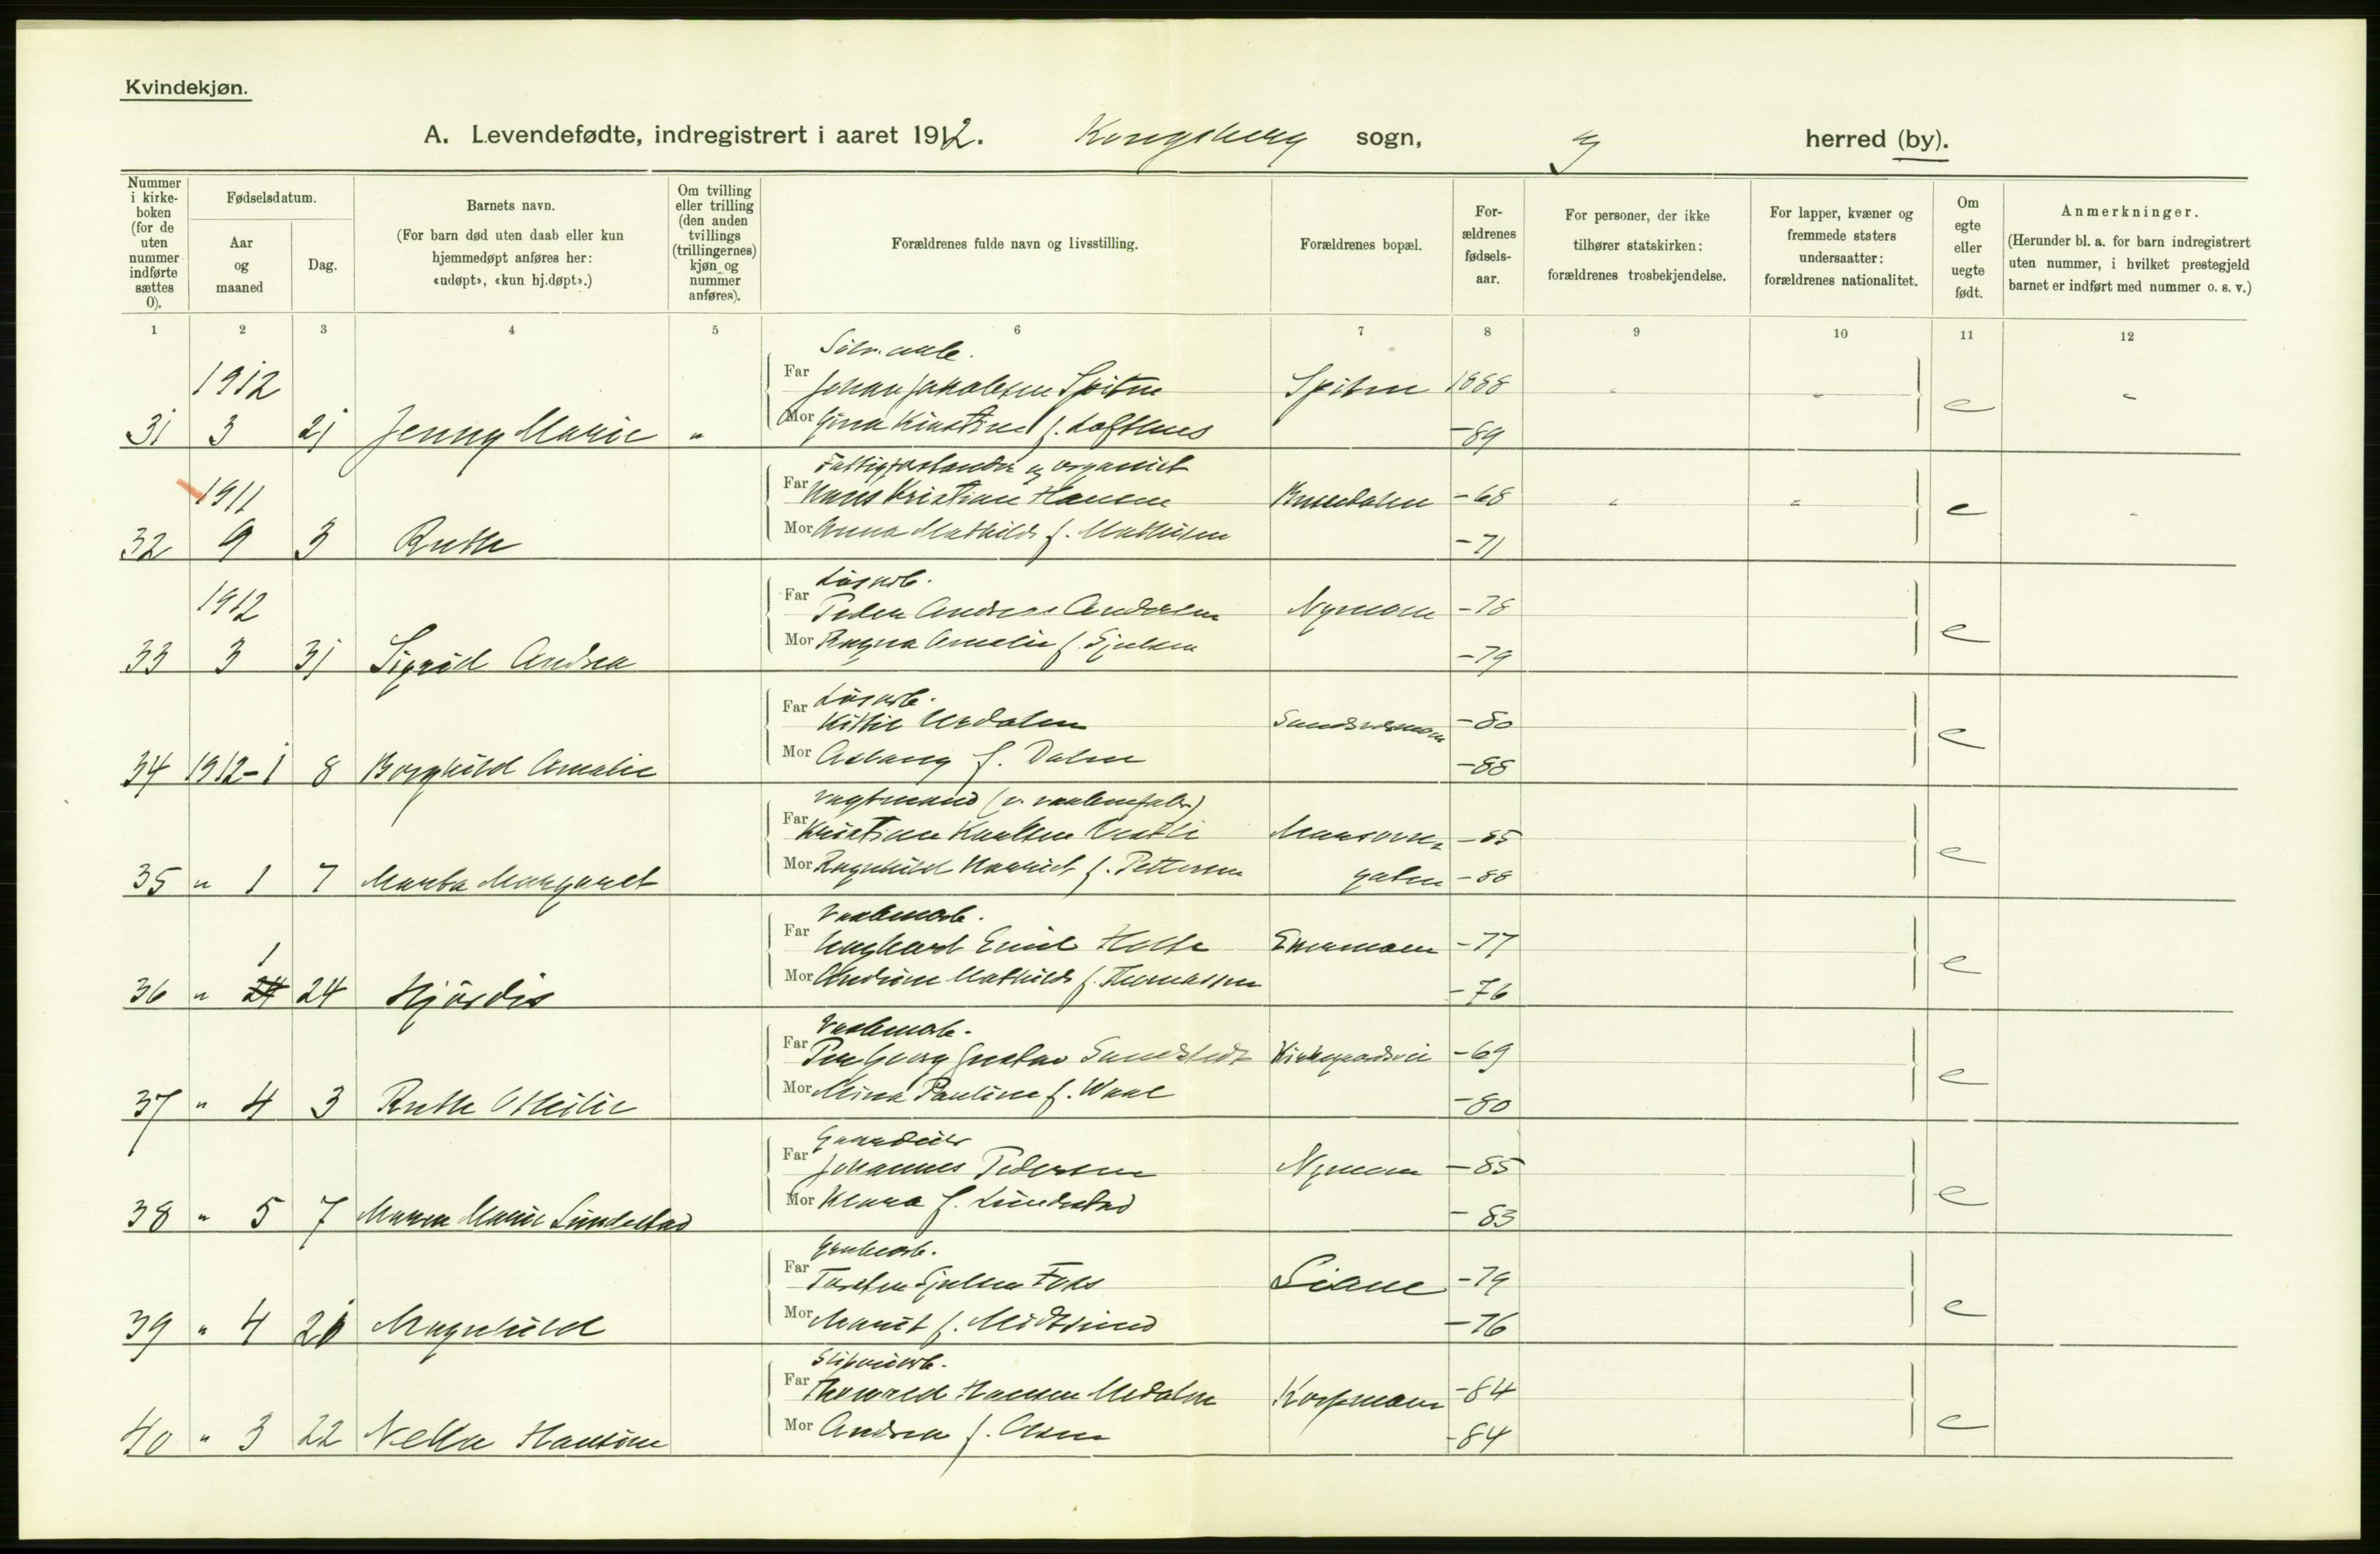 Kvindekjøn.
A. Levendefødte, indregistrert i aaret 1912. Kongsberg sogn, herred (by).
Nummer i kirkeboken (for de uten nummer indførte sættes 0).
Fødselsdatum.
Aar og maaned
Dag.
Barnets navn.
(For barn død uten daab eller kun hjemmedøpt anføres her: «udøpt», «kun hj.døpt».)
Om tvilling eller trilling (den anden tvillings (trillingernes) kjøn og nummer anføres).
Forældrenes fulde navn og livsstilling.
Forældrenes bopæl.
Forældrenes fødselsaar.
For personer, der ikke tilhører statskirken: forældrenes trosbekjendelse.
For lapper, kvæner og fremmede staters undersaatter: forældrenes nationalitet.
Om egte eller uegte født.
Anmerkninger.
(Herunder bl. a. for barn indregistrert uten nummer, i hvilket prestegjeld barnet er indført med nummer o. s. v.)
1 2 3 4 5 6 7 8 9 10 11 12
1912
Far Johan Jakobsen Spiten Spiten 1888
31 3 21 Jenny Marie " Mor Gina Kirstine f. Lofthus -89 e
Fattigforstander og organist
1911 Far Hans Kristian Hansen -68
32 9 3 Ruth Mor Anna Mathilde f. Mathisen -71 e
Løsarb.
1912 Far Peder Andreas Andersen Nymoen -78
33 3 31 Sigrid Andrea Mor Ragna Amalie f. -79 e
Løsarb.
Far Kittil -80
34 1912-1 8 Borghild Amalie Mor Aslaug f. Dalen -88 e
Vagtmand (v. vaabenfabr)
Far Kristian -85
35 " 1 7 Marta Margaret Mor Ragnhild f. Pettersen gaten -88 e
Vaabenarb.
Far Emil -77
36 " 1 24 Hjørdis Mor Mathilde f. Thomassen -76 e
Vaabenarb.
Far Per Georg Gustav Sundstedt Kirkegaardsvei -69
37 " 4 3 Ruth Otilie Mor Mina Pauline f. Waal -80 e
Far Johannes Pedersen Nymoen -85
38 " 5 7 Maren Marie Lundestad Mor Klara f. Lundestad -83 e
Grubearb.
Far Torsten -79
39 " 4 21 Magnhild Mor Marit f. -76 e
Sliperiarb.
Far Thorvald Hansen -84
40 " 3 22 Nelka Hansine Mor Andrea f. Olsen -84 e